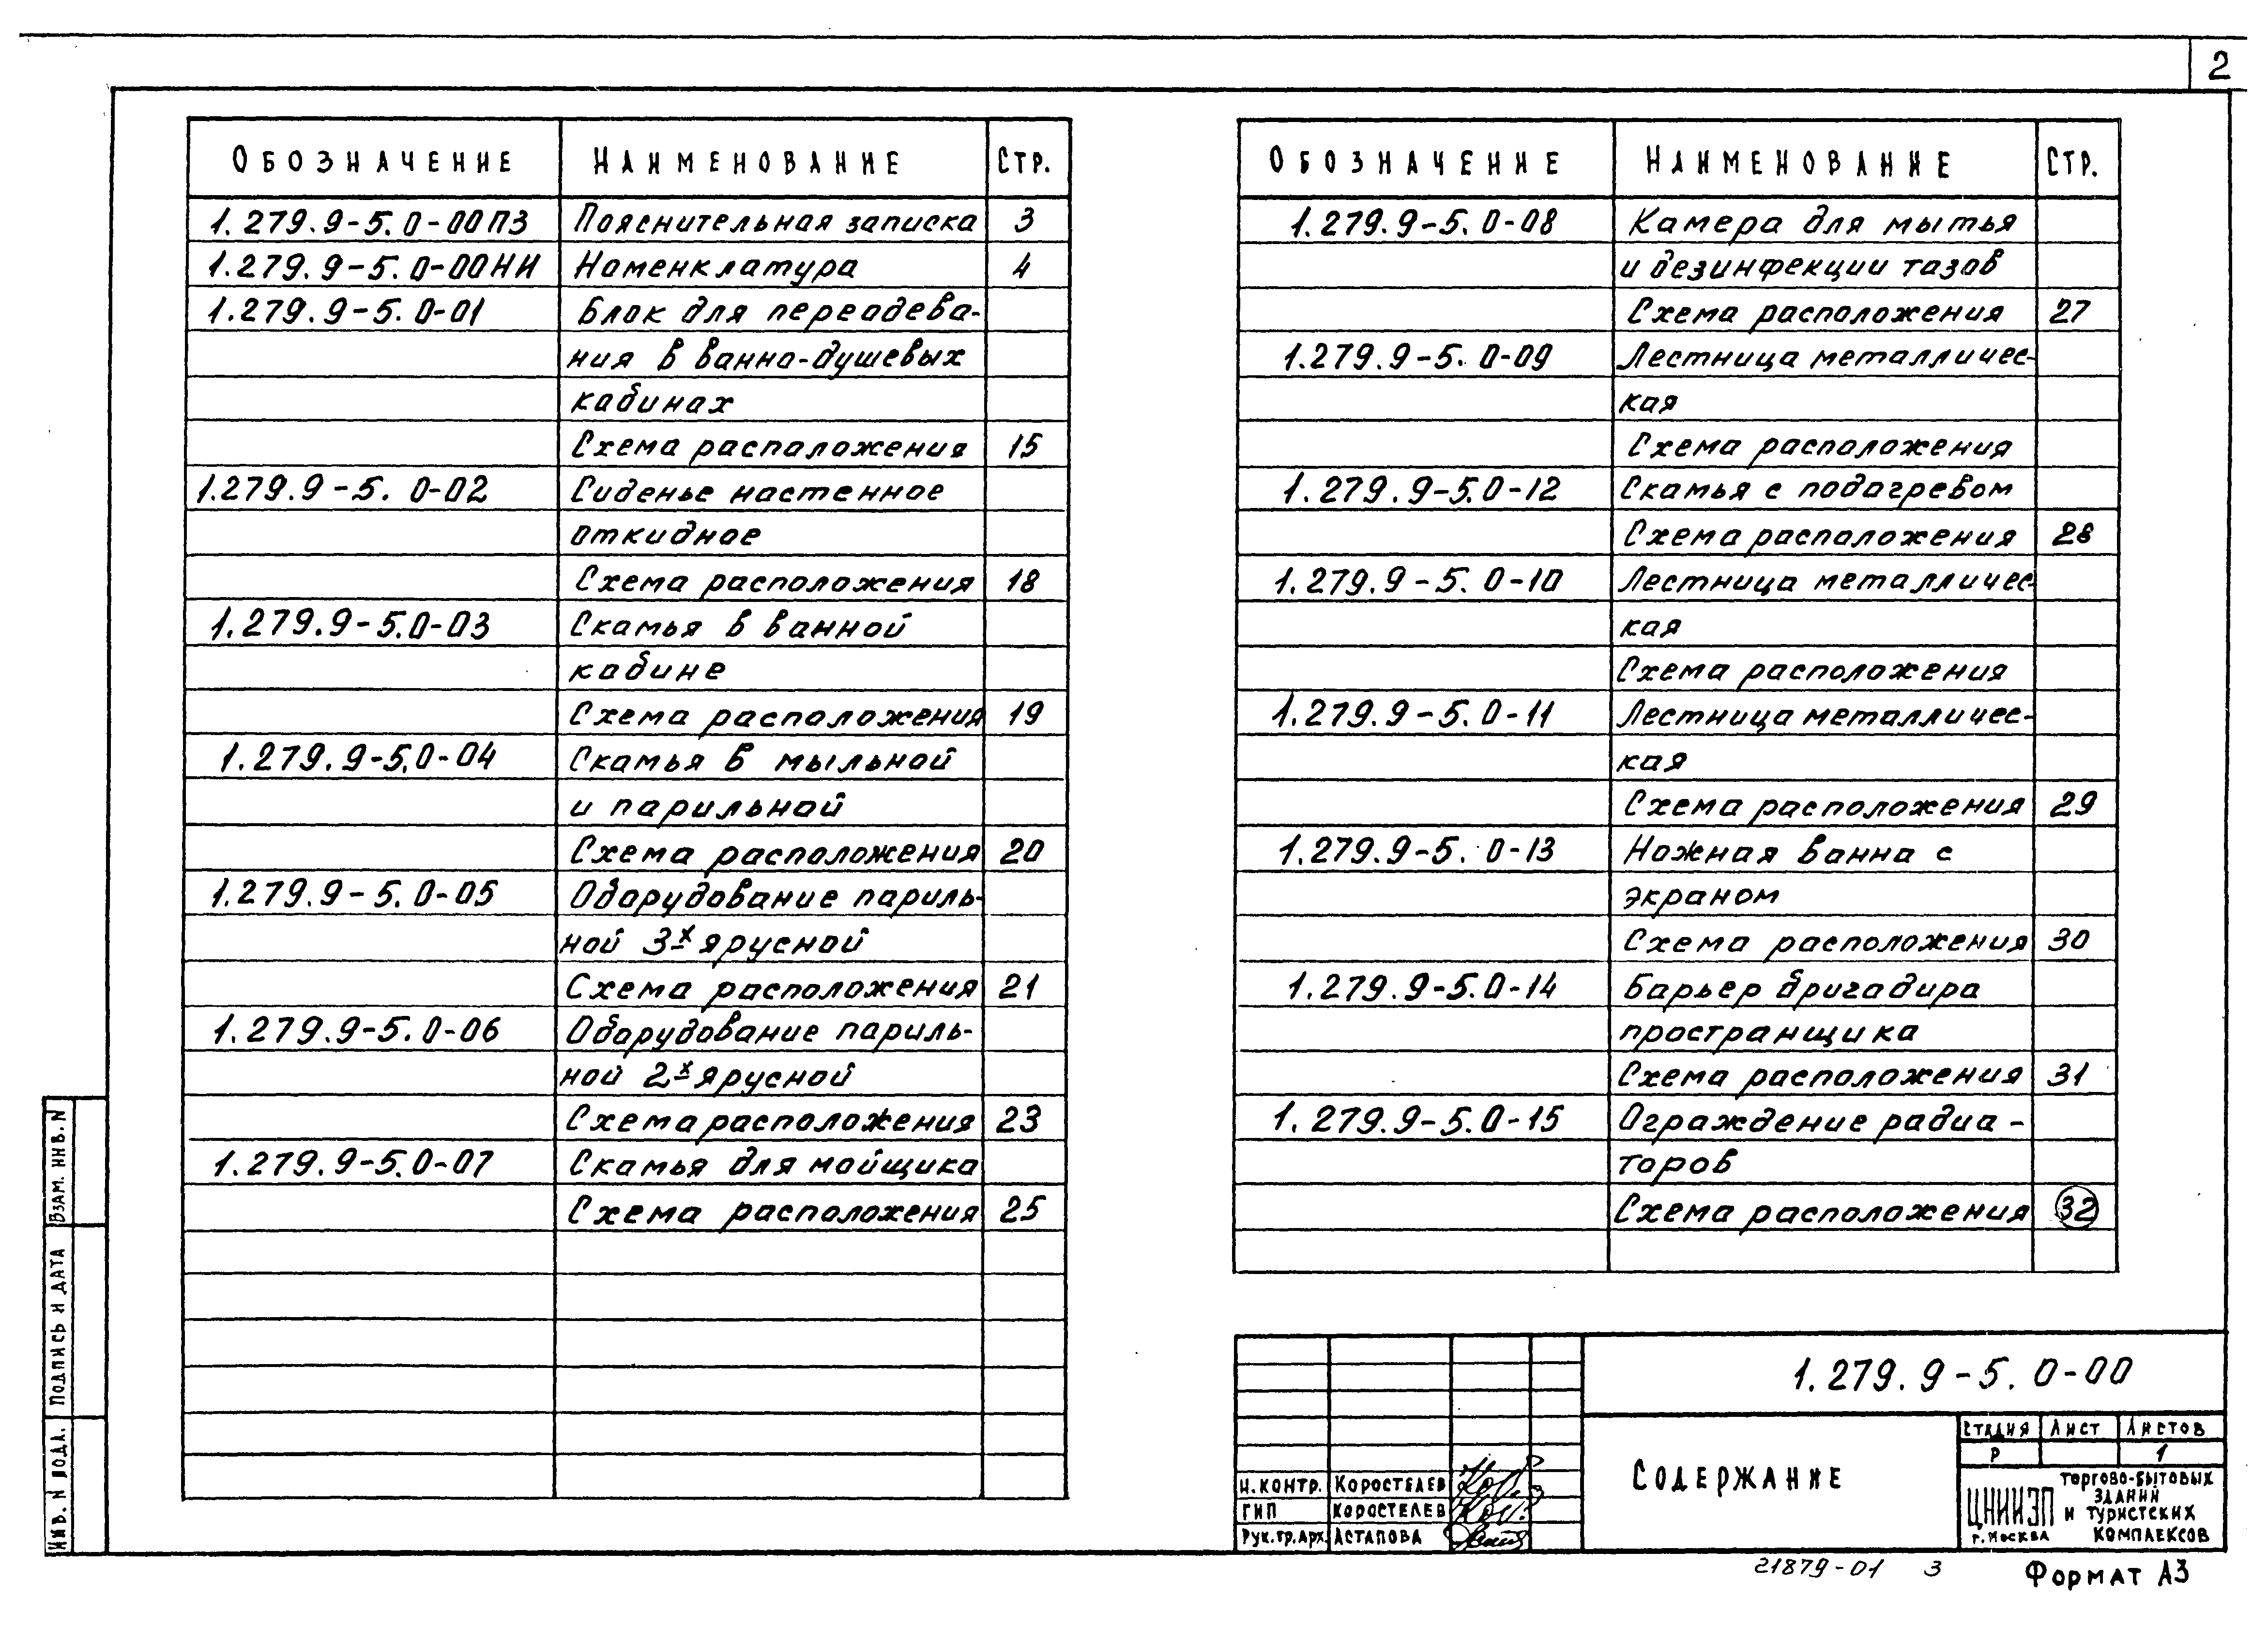 2
ОБОЗНАЧЕНИЕ НАИМЕНОВАНИЕ СТР.
1.279.9-5.0-00ПЗ Пояснительная записка 3
1.279.9-5.0-00НИ Номенклатура 4
1.279.9-5.0-01 Блок для переодева-
ния в ванно-душевых
кабинах
Схема расположения 15
1.279.9-5.0-02 Сиденье настенное
откидное
Схема расположения 18
1.279.9-5.0-03 Скамья в ванной
кабине
Схема расположения 19
1.279.9-5.0-04 Скамья в мыльной
и парильной
Схема расположения 20
1.279.9-5.0-05 Оборудование париль-
ной 3х ярусной
Схема расположения 21
1.279.9-5.0-06 Оборудование париль-
ной 2х ярусной
Схема расположения 23
1.279.9-5.0-07 Скамья для мойщика
Схема расположения 25
ОБОЗНАЧЕНИЕ НАИМЕНОВАНИЕ СТР.
1.279.9-5.0-08 Камера для мытья
и дезинфекции тазов
Схема расположения 27
1.279.9-5.0-09 Лестница металличес-
кая
Схема расположения
1.279.9-5.0-12 Скамья с подогревом
Схема расположения 28
1.279.9-5.0-10 Лестница металличес-
кая
Схема расположения
1.279.9-5.0-11 Лестница металличес-
кая
Схема расположения 29
1.279.9-5.0-13 Ножная ванна с
экраном
Схема расположения 30
1.279.9-5.0-14 Барьер бригадира
пространщика
Схема расположения 31
1.279.9-5.0-15 Ограждение радиа-
торов
Схема расположения 32
ВЗАМ. ИНВ. N
ПОДПИСЬ И ДАТА
ИНВ. N ПОДЛ.
1.279.9-5.0-00
СОДЕРЖАНИЕ
СТАДИЯ ЛИСТ ЛИСТОВ
Р 1
Н.КОНТР. КОРОСТЕЛЕВ
ГИП КОРОСТЕЛЕВ
РУК.ГР.АРХ. АСТАПОВА
ЦНИИЭП
г.МОСКВА
ТОРГОВО-БЫТОВЫХ
ЗДАНИЙ
И ТУРИСТСКИХ
КОМПЛЕКСОВ
21879-01 3
ФОРМАТ А3